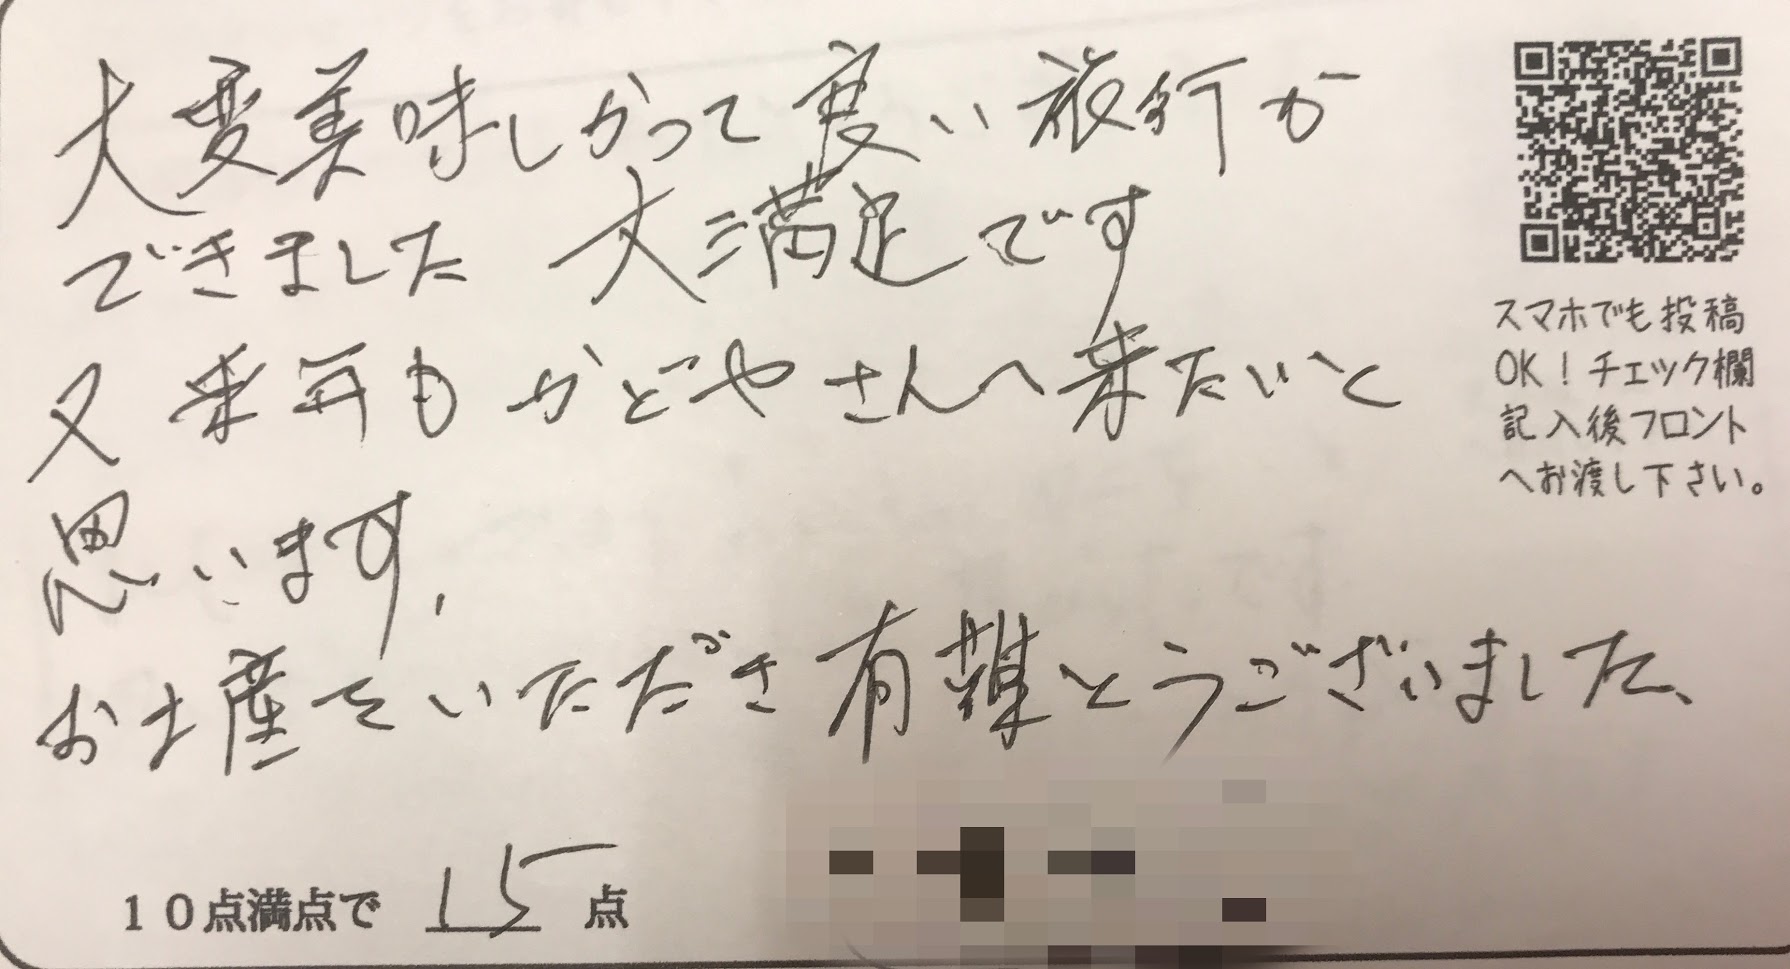 大変美味しかって良い旅行が
できました 大満足です
又来年もかどやさんへ来たいと
思います、
お土産をいただき有難とうございました、
10点満点で 15 点
スマホでも投稿
OK！チェック欄
記入後フロント
へお渡し下さい。